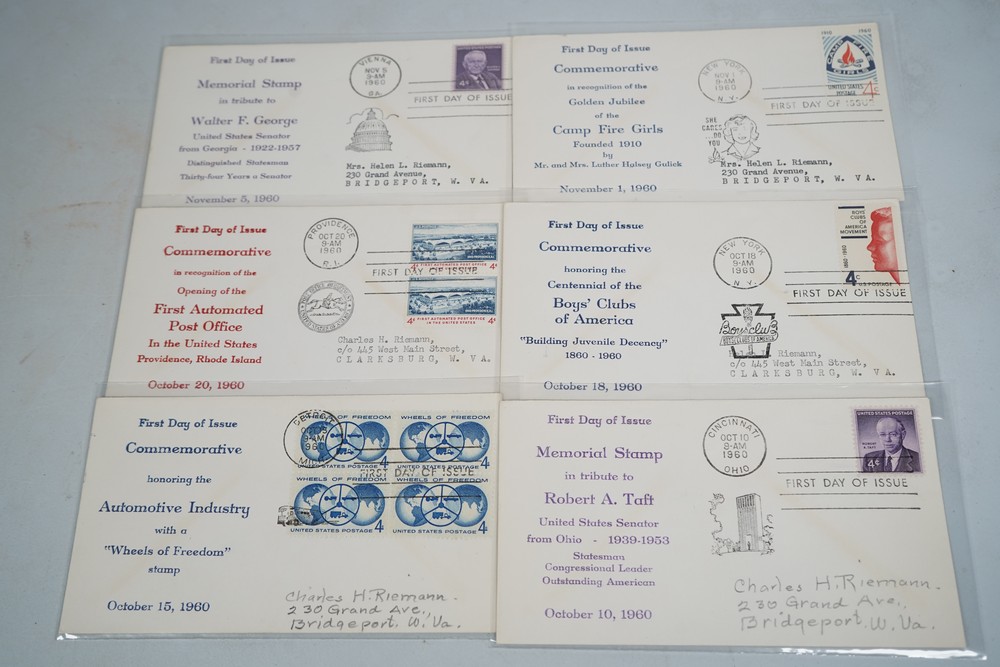 First Day of Issue
Memorial Stamp
in tribute to
Walter F. George
United States Senator
from Georgia - 1922-1957
Distinguished Statesman
Thirty-four Years a Senator
November 5, 1960
VIENNA
NOV 5
9-AM
1960
GA.
4¢
FIRST DAY OF ISSUE
Mrs. Helen L. Riemann,
230 Grand Avenue,
BRIDGEPORT, W. VA.
First Day of Issue
Commemorative
in recognition of the
Golden Jubilee
of the
Camp Fire Girls
Founded 1910
by
Mr. and Mrs. Luther Halsey Gulick
November 1, 1960
NEW YORK
NOV 1
9-AM
1960
N.Y.
1910 1960
CAMP FIRE GIRLS
UNITED STATES
POSTAGE 4¢
FIRST DAY OF ISSUE
SHE
CARES
...DO
YOU
Mrs. Helen L. Riemann,
230 Grand Avenue,
BRIDGEPORT, W. VA.
First Day of Issue
Commemorative
in recognition of the
Opening of the
First Automated
Post Office
In the United States
Providence, Rhode Island
October 20, 1960
PROVIDENCE
OCT 20
9-AM
1960
R.I.
FIRST DAY OF ISSUE
4¢ FIRST AUTOMATED POST OFFICE 4¢
4¢ FIRST AUTOMATED POST OFFICE 4¢
IN THE UNITED STATES
Charles H. Riemann,
c/o 445 West Main Street,
CLARESBURG, W. VA.
First Day of Issue
Commemorative
honoring the
Centennial of the
Boys' Clubs
of America
"Building Juvenile Decency"
1860 - 1960
October 18, 1960
NEW YORK
OCT 18
9-AM
1960
N.Y.
BOYS'
CLUBS
OF
AMERICA
MOVEMENT
1860-1960
4¢
U.S. POSTAGE
FIRST DAY OF ISSUE
Boys' Club
BOYS' CLUBS OF AMERICA
Riemann,
c/o 445 West Main Street,
CLARESBURG, W. VA.
First Day of Issue
Commemorative
honoring the
Automotive Industry
with a
"Wheels of Freedom"
stamp
October 15, 1960
DETROIT
9-AM
MICH.
WHEELS OF FREEDOM WHEELS OF FREEDOM
UNITED STATES POSTAGE 4¢ UNITED STATES POSTAGE 4¢
FIRST DAY OF ISSUE
WHEELS OF FREEDOM WHEELS OF FREEDOM
UNITED STATES POSTAGE 4¢ UNITED STATES POSTAGE 4¢
Charles H. Riemann.
230 Grand Ave.,
Bridgeport. W. Va.
First Day of Issue
Memorial Stamp
in tribute to
Robert A. Taft
United States Senator
from Ohio - 1939-1953
Statesman
Congressional Leader
Outstanding American
October 10, 1960
CINCINNATI
OCT 10
8-AM
1960
OHIO
UNITED STATES POSTAGE
ROBERT
A. TAFT
4¢
FIRST DAY OF ISSUE
Charles H. Riemann.
230 Grand Ave.,
Bridgeport. W. Va.